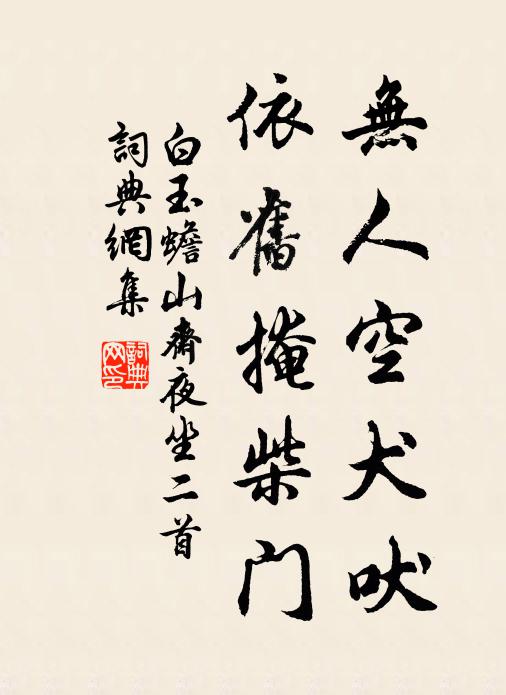 無人空犬吠
依舊掩柴门
白玉蟾山齋夜坐二首
詞典網集
詞典网印